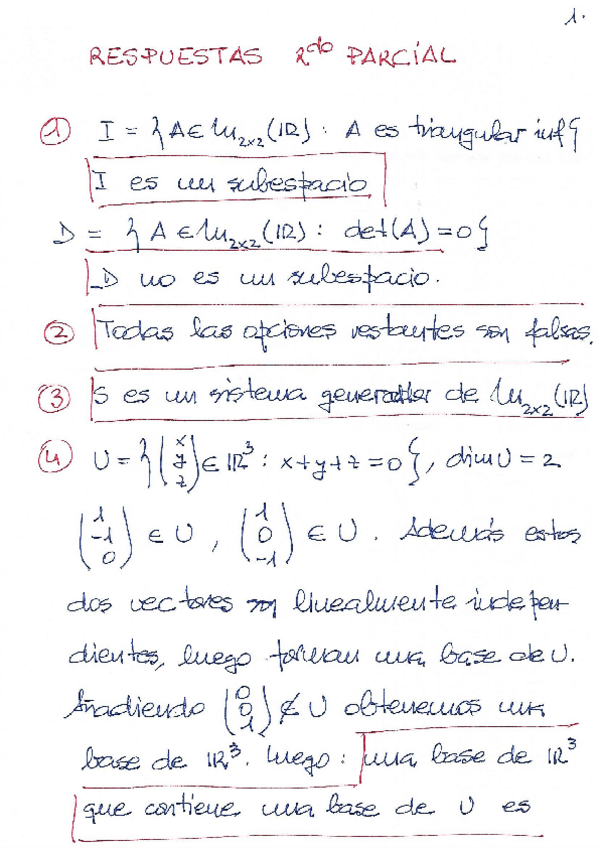 1.
RESPUESTAS 2do PARCIAL
① I = {A∈M₂ₓ₂(ℝ): A es triangular inf}
I es un subespacio
D = {A∈M₂ₓ₂(ℝ): det(A)=0}
D no es un subespacio.
② Todas las opciones restantes son falsas.
③ S es un sistema generador de M₂ₓ₂(ℝ)
④ U = {(x y z) ∈ ℝ³: x+y+z=0}, dim U = 2
(1 -1 0) ∈ U, (1 0 -1) ∈ U. Además estos
dos vectores son linealmente indepen-
dientes, luego forman una base de U.
Añadiendo (0 0 1) ∉ U obtenemos una
base de ℝ³. Luego: una base de ℝ³
que contiene una base de U es